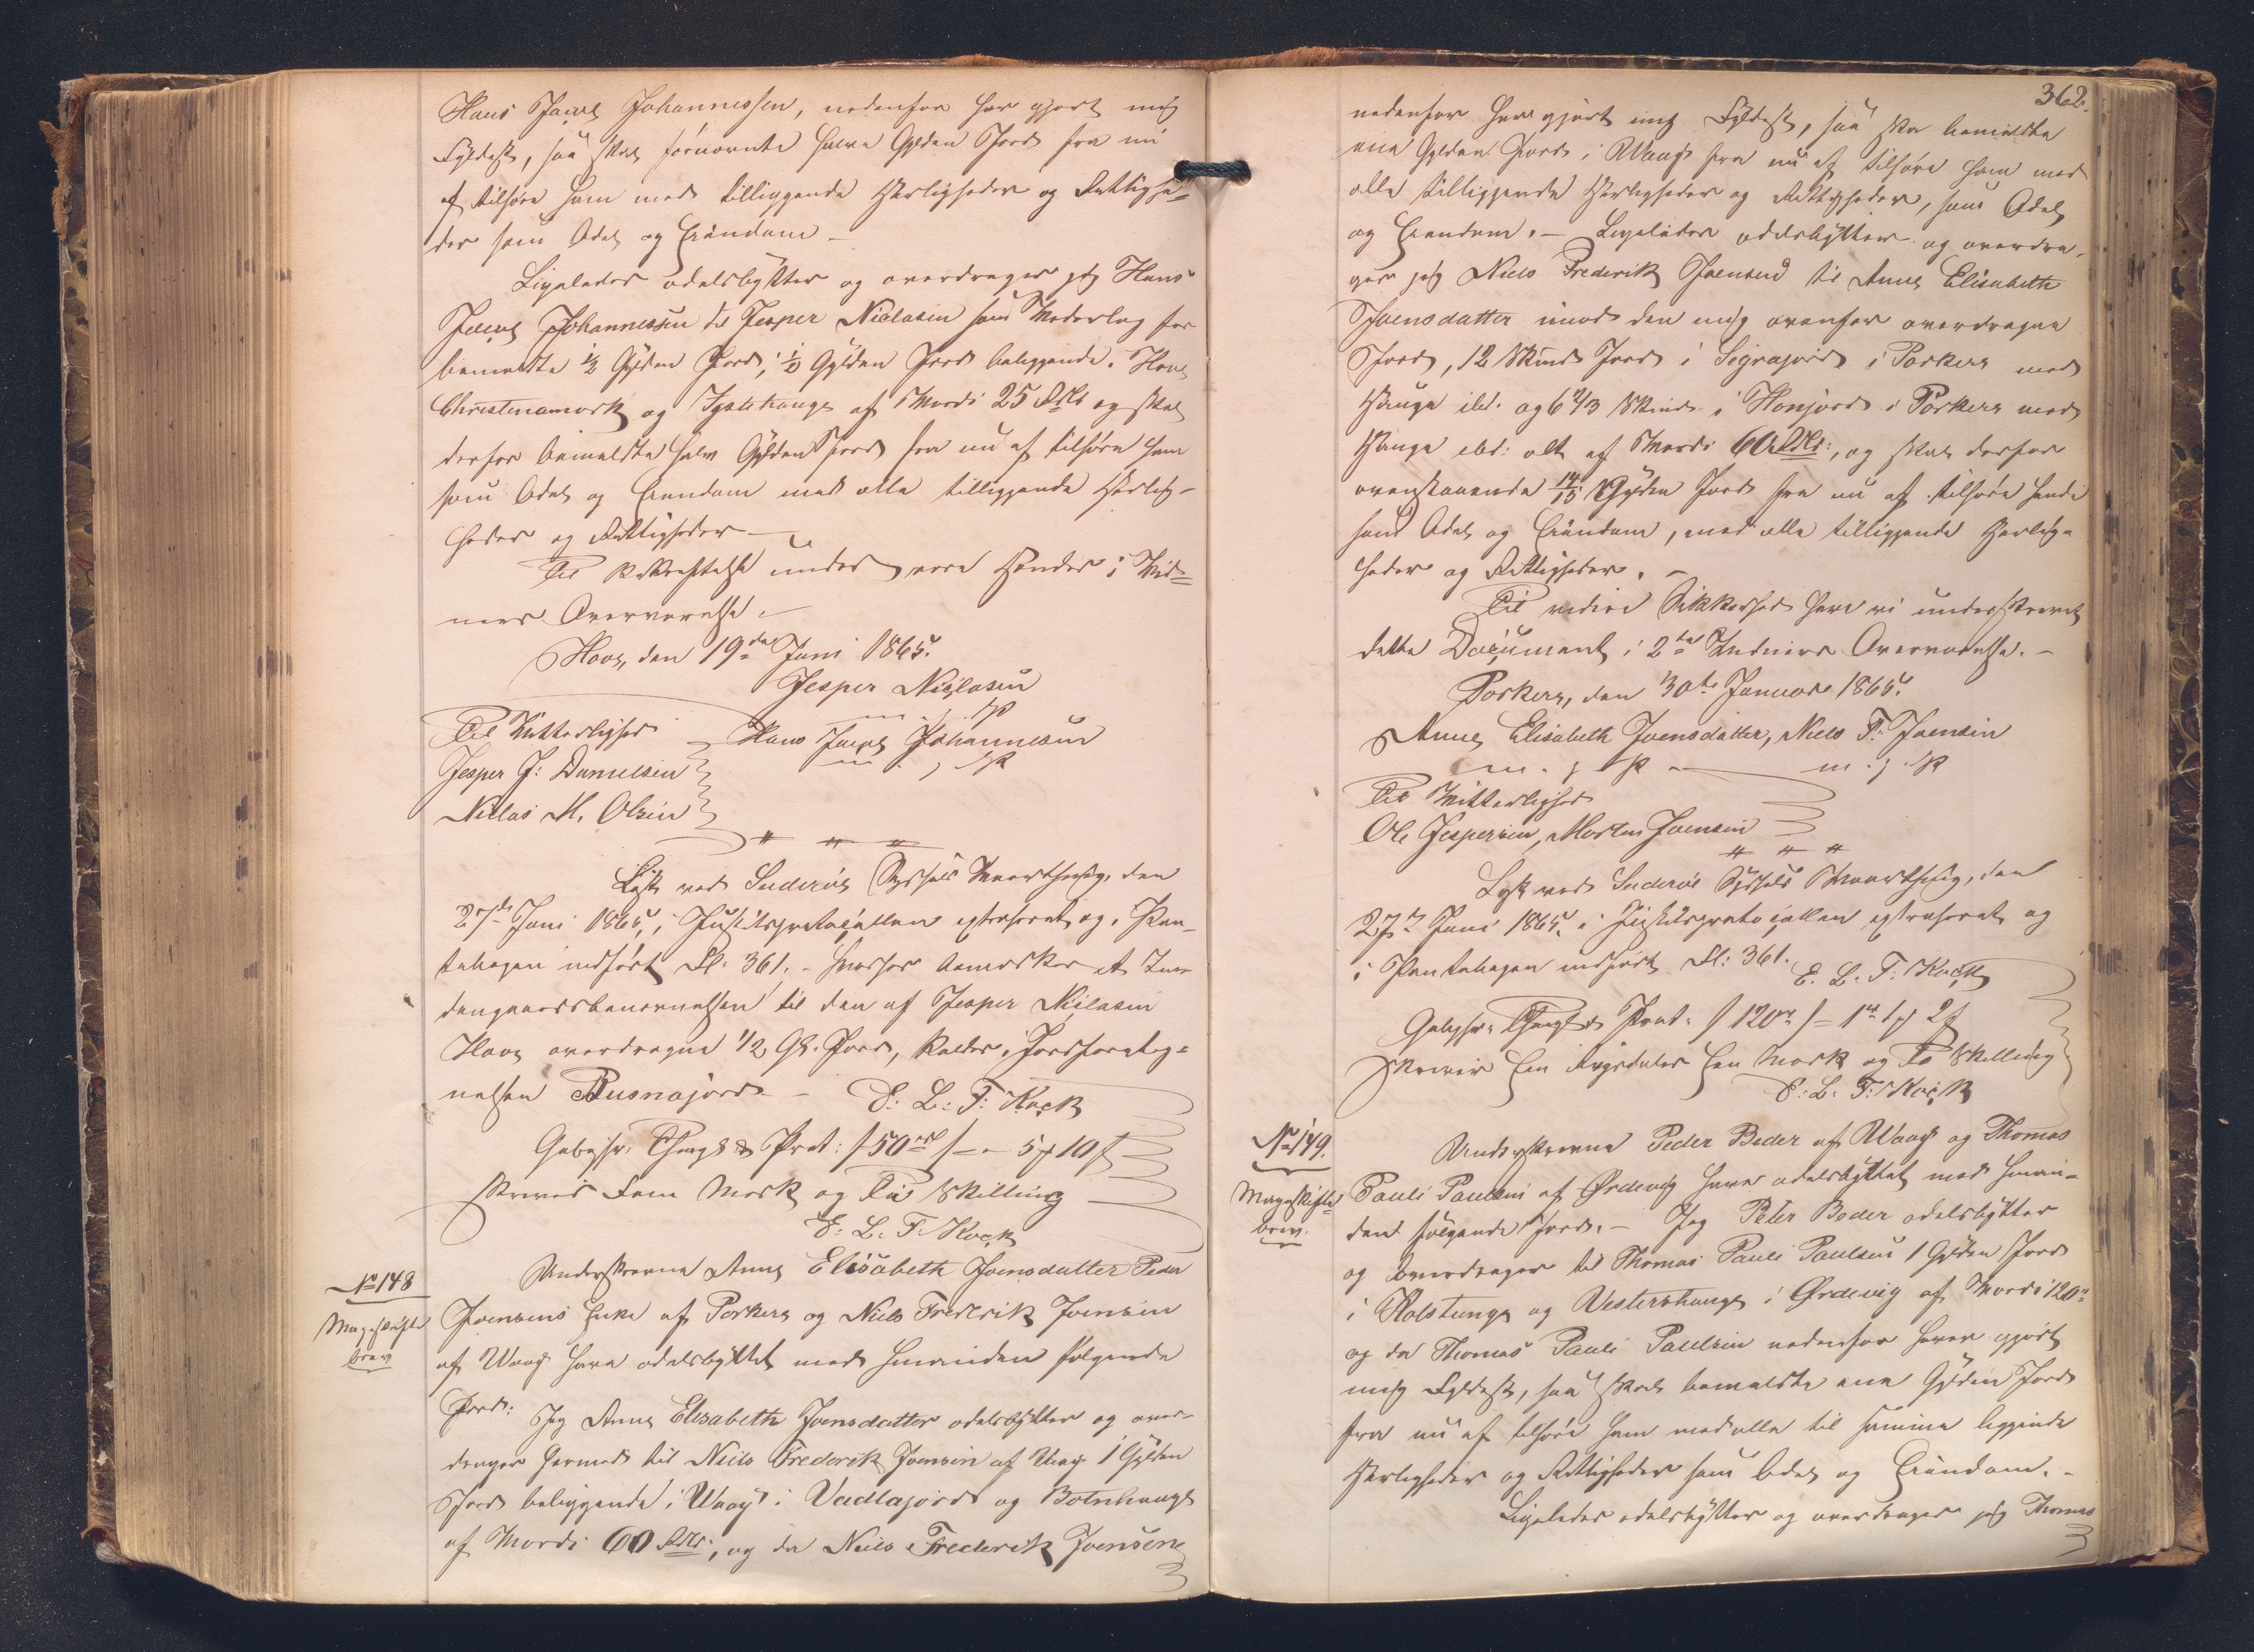 Hans Jacob Johannessen, nedenfor har gjort mig
Fyldest, saa skal fornævnte halve Gylden Jord fra nu
af tilhøre ham med tilliggende Herligheder og Rettighe-
der som Odel og Eiendom –
Ligeledes odelsbytter og overdrager jeg Hans
Johannessen til Jesper Niclasen som Vederlag for
bemeldte ½ Gylden Jord, ½ Gylden Jord beliggende i Hove
Christinamork og af Værdi 25 Rdlr og skal
derfor bemeldte halv Gylden Jord fra nu af tilhøre ham
som Odel og Eiendom med alle tilliggende Herlig-
heder og Rettigheder –
Til Bekræftelse under vore Hænder i Vid-
ners Overværelse. –
Hove, den 19de Juni 1865.
Jesper Niclasen
m. j. P
Til Vitterlighed Hans Johannesen
Jesper J: Danielsen m. j. P
Niclas M. Olsen
Læst ved Suderøe Syssels Vaarthing, den
27de Juni 1865, i Justitsprotocollen extraheret og i Pan-
tebogen indført Fol: 361. – bemærkes at
til den af Jesper Niclasen
Hove overdragne 1/2 Gl. Jord, kaldes i Jordforteg-
nelsen Busnajord. – E: L: T: Kock
Gebyhr. Prot: / 50 rd / – „ – 5 10
skriver Fem Mark og Ti Skilling
E: L: T: Kock
No 148
Mageskifte
brev
Underskrevne Anne Elisabeth Joensdatter Peder
Joensens Enke af Porkere og Niels Frederik Joensen
af Waag have odelsbyttet med hinanden følgende
Jord: Jeg Anne Elisabeth Joensdatter odelsbytter og over-
drager hermed til Niels Frederik Joensen af Waag 1 Gylden
Jord beliggende i Waag i Vadlajord og Botnhauge
af Værdi 60 Rdlr:, og da Niels Frederik Joensen
362.
nedenfor har gjort mig Fyldest, saa skal bemeldte
ene Gylden Jord i Waag fra nu af tilhøre ham med
alle tilliggende Herligheder og Rettigheder, som Odel
og Eiendom. – Ligeledes odelsbytter og overdra-
ger jeg Niels Frederik Joensen til Anne Elisabeth
Joensdatter imod den mig ovenfor overdragne
Jord, 12 Skind Jord i Segrajord i Porkere med
Hauge ibd. og 6 2/3 Skind i Honjord i Porkere med
Hauge ibd: alt af Værdi 60 Rdlr:, og skal derfor
ovenstaaende 14/15 Gylden Jord fra nu af tilhøre hende
som Odel og Eiendom, med alle tilliggende Herlig-
heder og Rettigheder. –
Til videre Sikkerhed have vi underskrevet
dette Document i 2de Vidners Overværelse. –
Porkere, den 30te Januar 1865.
Anne Elisabeth Joensdatter, Niels F: Joensen
m. j. P m. j. P
Til Vitterlighed
Ole Jespersen, Morten Joensen
Læst ved Suderøe Syssels Vaarthing, den
27de Juni 1865, i Justitsprotocollen extraheret og
i Pantebogen indført Fol: 361.
E. L. T: Kock
Gebyhr: Prot: / 120 rd / – 1 rd 1 2
skriver Een Rigsdaler Een Mark og To Skilling
E: L: T: Kock
No 149.
Mageskifte
brev.
Underskrevne Peder Beder af Waag og Thomas
Pauli Paulsen af Ørdevig have odelsbyttet med hinan-
den følgende Jord. – Jeg Peter Beder odelsbytter
og overdrager til Thomas Pauli Paulsen 1 Gylden Jord
i Kolstunge og Vestershauge i Ørdevig af Værdi 120 rd
og da Thomas Pauli Paulsen nedenfor haver gjort
mig Fyldest, saa skal bemeldte ene Gylden Jord
fra nu af tilhøre ham med alle til samme liggende
Herligheder og Rettigheder som Odel og Eiendom. –
Ligeledes odelsbytter og overdrager jeg Thomas